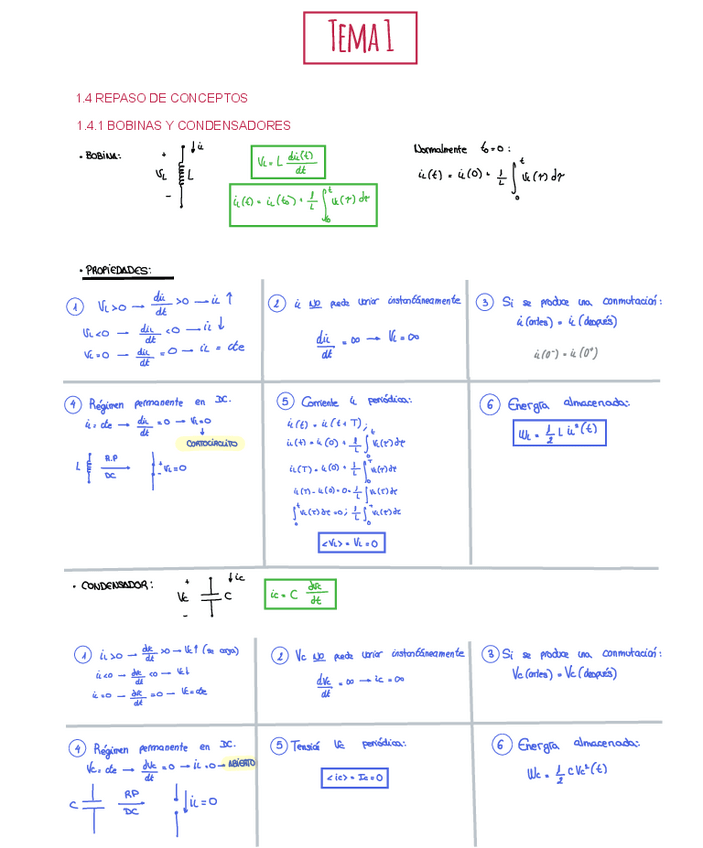 TEMA 1
1.4 REPASO DE CONCEPTOS
1.4.1 BOBINAS Y CONDENSADORES
• BOBINA:
+ V_L - L ↓ i_L
V_L = L di_L(t)/dt
i_L(t) = i_L(t_0) + 1/L ∫_{t_0}^{t} V_L(τ) dτ
Normalmente t_0 = 0 :
i_L(t) = i_L(0) + 1/L ∫_0^t V_L(τ) dτ
• PROPIEDADES:
① V_L > 0 → di_L/dt > 0 → i_L ↑
V_L < 0 → di_L/dt < 0 → i_L ↓
V_L = 0 → di_L/dt = 0 → i_L = cte
② i_L NO puede variar instantáneamente
di_L/dt = ∞ → V_L = ∞
③ Si se produce una conmutación:
i_L(antes) = i_L(después)
i_L(0⁻) = i_L(0⁺)
④ Régimen permanente en DC.
i_L = cte → di_L/dt = 0 → V_L = 0
↓
CORTOCIRCUITO
L R.P → DC + - V_L = 0
⑤ Corriente i_L periódica:
i_L(t) = i_L(t + T);
i_L(t) = i_L(0) + 1/L ∫_0^t V_L(τ) dτ
i_L(T) = i_L(0) + 1/L ∫_0^T V_L(τ) dτ
i_L(T) - i_L(0) = 0 = 1/L ∫ V_L(τ) dτ
∫_0^t V_L(τ) dτ = 0; 1/L ∫_0^T V_L(τ) dτ
<V_L> = V_L = 0
⑥ Energía almacenada:
W_L = 1/2 L i_L²(t)
• CONDENSADOR:
+ V_C - C ↓ i_C
i_C = C dV_C/dt
① i_L > 0 → dV_C/dt > 0 → V_C ↑ (se carga)
i_L < 0 → dV_C/dt < 0 → V_C ↓
i_L = 0 → dV_C/dt = 0 → V_C = cte
② V_C NO puede variar instantáneamente
dV_C/dt = ∞ → i_C = ∞
③ Si se produce una conmutación:
V_C(antes) = V_C(después)
④ Régimen permanente en DC.
V_C = cte → dV_C/dt = 0 → i_L = 0 → ABIERTO
C RP → DC ↓ i_L = 0
⑤ Tensión V_C periódica:
<i_C> = I_C = 0
⑥ Energía almacenada:
W_C = 1/2 C V_C²(t)